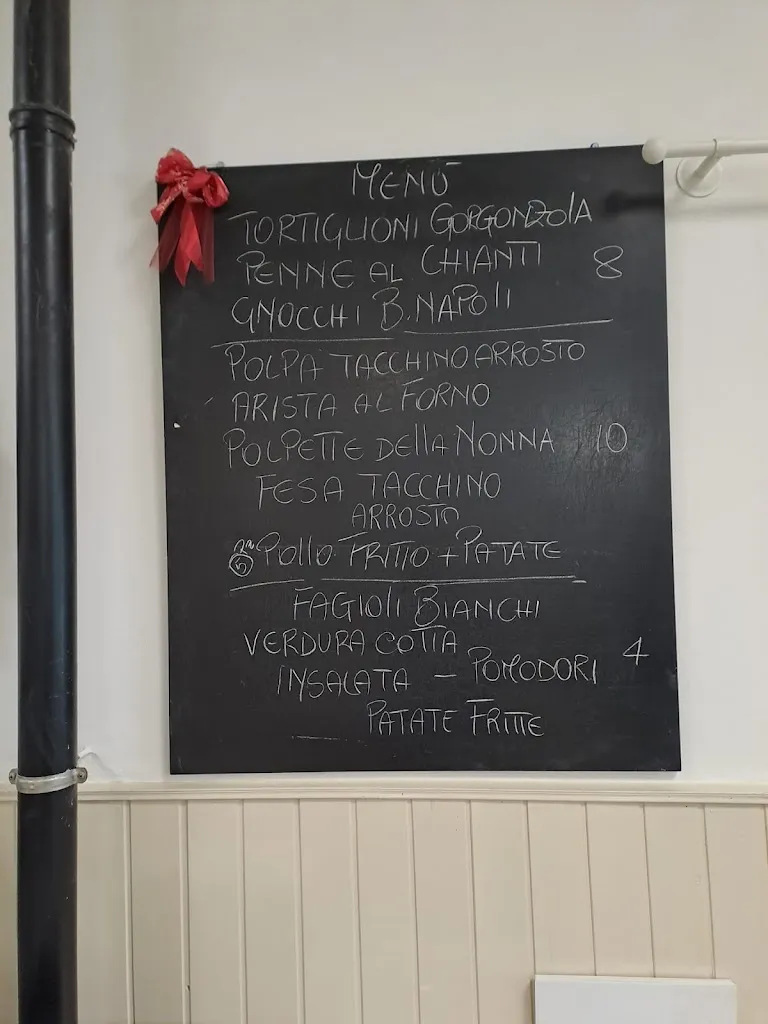 MENÙ
TORTIGLIONI GORGONZOLA
PENNE AL CHIANTI 8
GNOCCHI B. NAPOLI
POLPA TACCHINO ARROSTO
ARISTA AL FORNO
POLPETTE DELLA NONNA 10
FESA TACCHINO
ARROSTO
POLLO FRITTO + PATATE
FAGIOLI BIANCHI
VERDURA COTTA
INSALATA - POMODORI 4
PATATE FRITTE